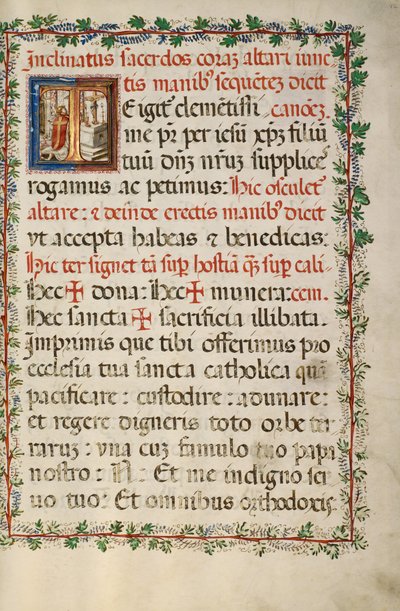 Inclinatus sacerdos coraz altari iunc
tis manib⁹ sequētez dicit
TE igit᷑ clemētissi canōez.
me pr̄ per iesū xp̄z filiū
tuū dn̄z nr̄uz supplice
rogamus ac petimus: Hic osculet᷑
altare: ⁊ deinde erectis manib⁹ dicit
vt accepta habeas ⁊ benedicas:
Hic ter signet tā sup̄ hostiā q̄ȝ sup̄ cali
Hec ✠ dona: Hec ✠ munera: cem.
Hec sancta ✠ sacrificia illibata.
Imprimis que tibi offerimus pro
ecclesia tua sancta catholica quā
pacificare: custodire: adunare:
et regere digneris toto orbe ter
raruz: vna cuz famulo tuo papa
nostro: N: Et me indigno ser
uo tuo: Et omnibus orthodoxis